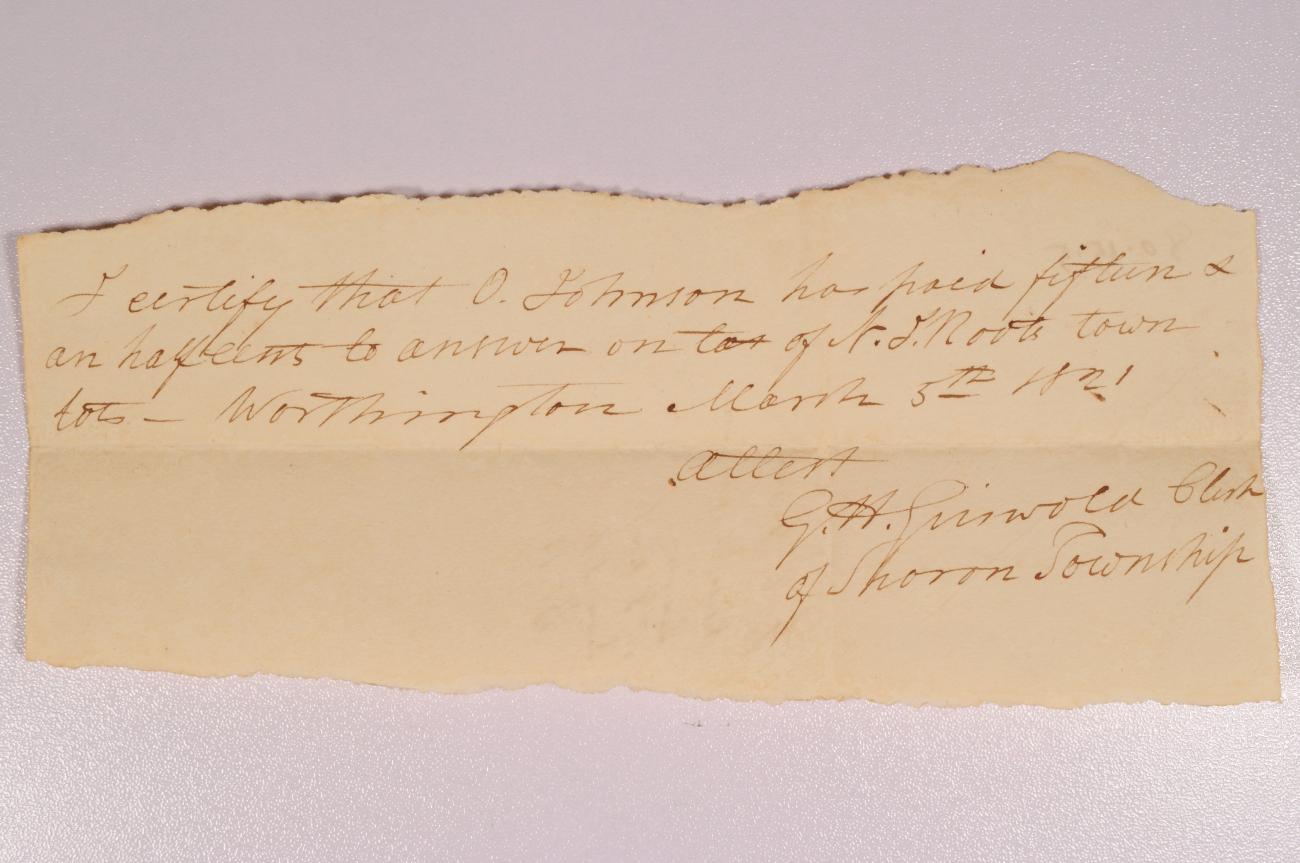 I certify that O. Johnson has paid fifteen &
an half cents to answer on tax of N. I. Roots town
lots - Worthington March 5th 1821
Attest
G. H. Griswold Clerk
of Sharon Township